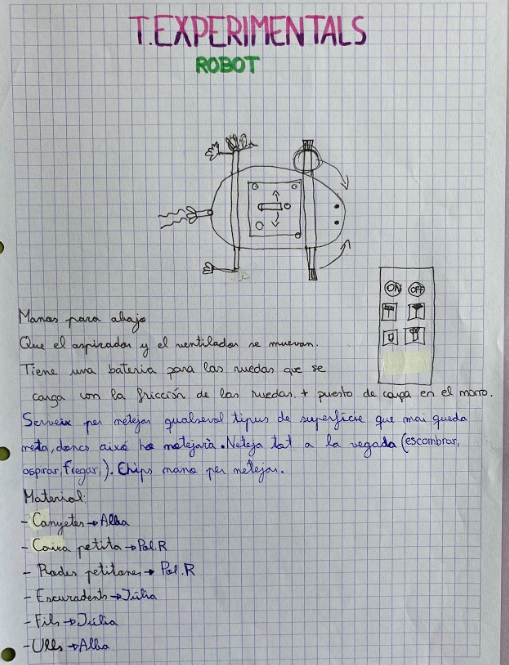 T.EXPERIMENTALS
ROBOT
ON OFF
Manos para abajo
Que el aspirador y el ventilador se muevan.
Tiene una bateria para las ruedas que se
carga con la fricción de las ruedas. + puesto de carga en el morro.
Serveix per netejar qualsevol tipus de superfície que mai queda
neta, doncs això ho netejarà. Neteja tot a la vegada (escombrar,
aspirar, fregar,). Chips mano per netejar.
Material:
- Canyetes → Alba
- Caixa petita → Pol.R
- Rodes petitones → Pol.R
- Escuradents → Júlia
- Fils → Júlia
- Ulls → Alba